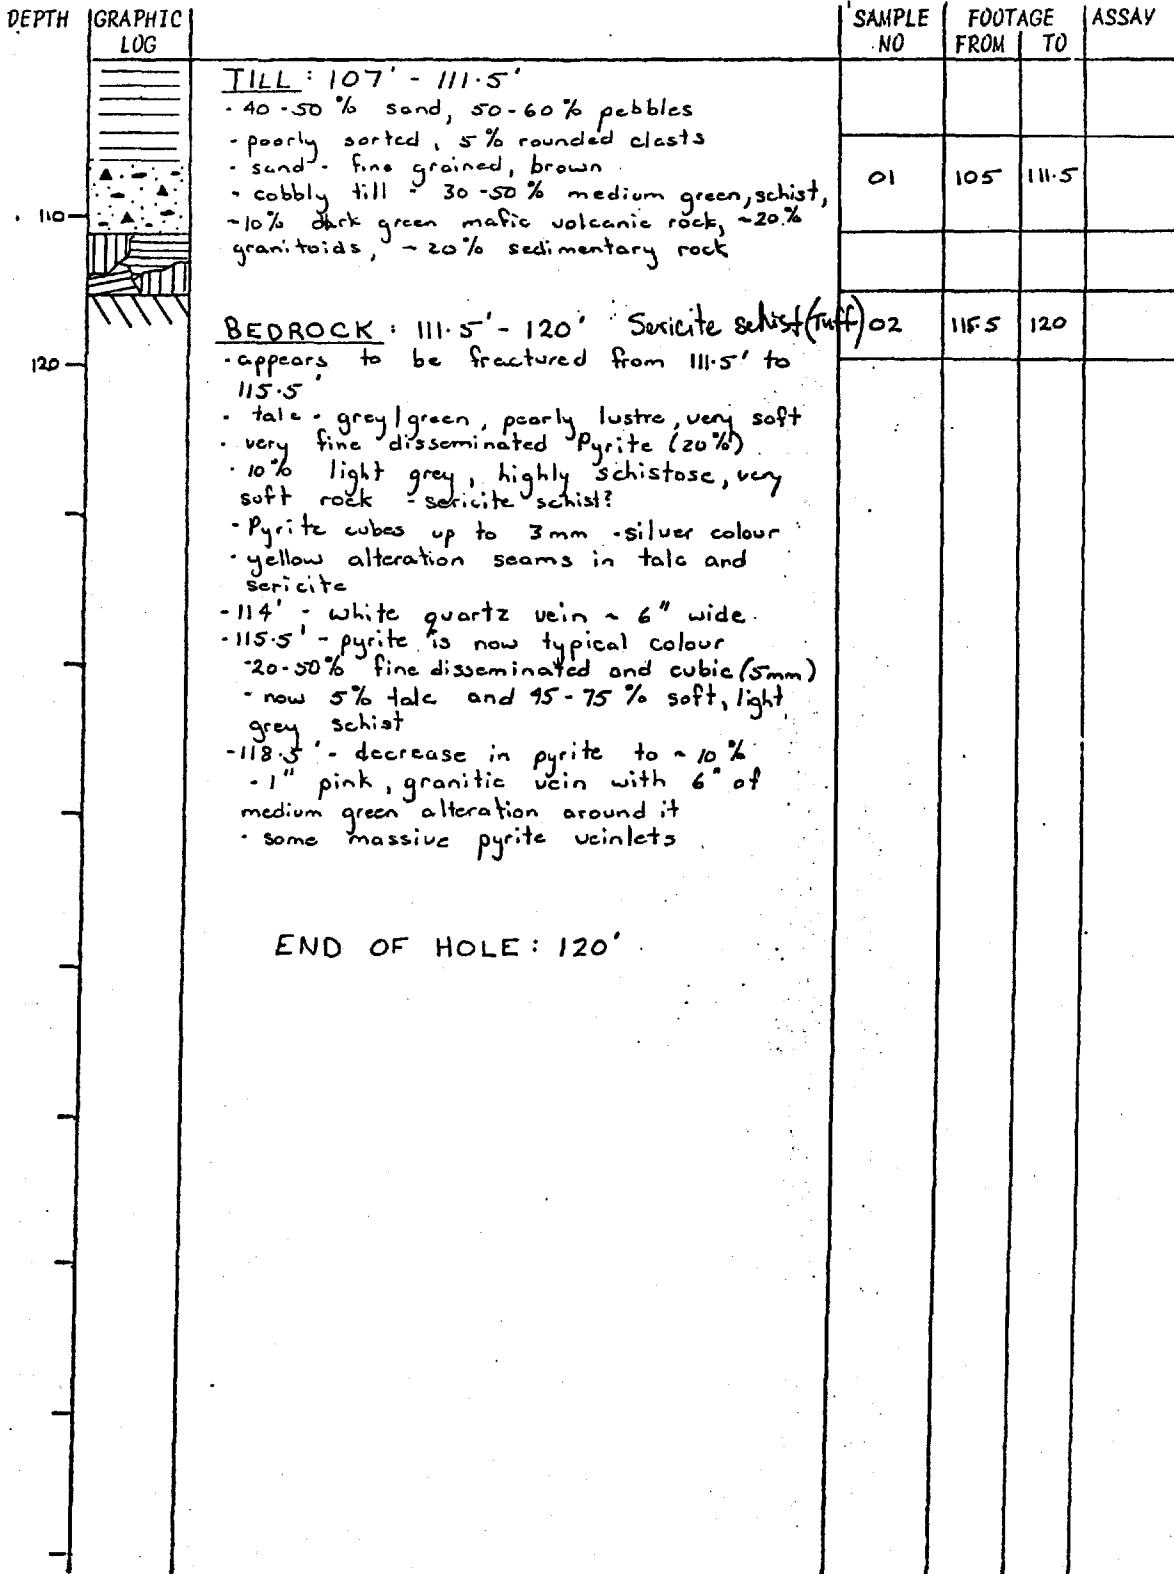 DEPTH GRAPHIC LOG SAMPLE NO FOOTAGE FROM TO ASSAY
TILL : 107' - 111.5'
- 40-50 % sand, 50-60 % pebbles
- poorly sorted, 5 % rounded clasts
- sand - fine grained, brown
01 105 111.5
- cobbly till - 30-50 % medium green, schist,
110
~10% dark green mafic volcanic rock, ~20%
granitoids, ~20% sedimentary rock
BEDROCK : 111.5' - 120' Sericite schist (Tuff) 02 115.5 120
120
- appears to be fractured from 111.5' to
115.5'
- talc - grey/green, pearly lustre, very soft
- very fine disseminated Pyrite (20%)
- 10% light grey, highly schistose, very
soft rock - sericite schist?
- Pyrite cubes up to 3mm - silver colour
- yellow alteration seams in talc and
sericite
- 114' - white quartz vein ~ 6" wide.
- 115.5' - pyrite is now typical colour
- 20-50% fine disseminated and cubic (5mm)
- now 5% talc and 45-75 % soft, light
grey schist
- 118.5' - decrease in pyrite to ~ 10 %
- 1" pink, granitic vein with 6" of
medium green alteration around it
- some massive pyrite veinlets
END OF HOLE : 120'